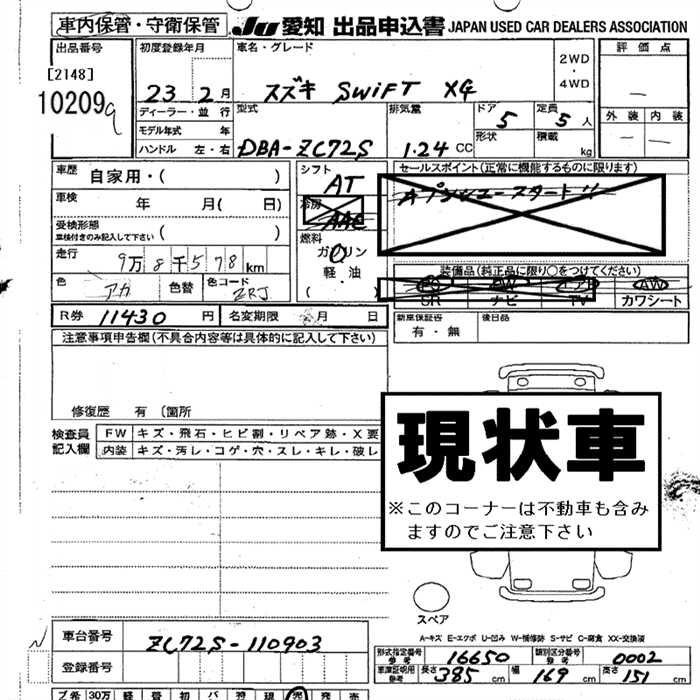 車内保管・守衛保管 JU 愛知 出品申込書 JAPAN USED CAR DEALERS ASSOCIATION
出品番号 初度登録年月 車名・グレード 2WD 評価点
[2148] 23 2月 スズキ SWiFT XG ・
10209 4WD
ディーラー・並行 型式 排気量 ドア 定員 外装 内装
モデル年式 年 DBA-ZC72S 1.24CC 5 5人
ハンドル 左・右 形状 積載 kg
車歴 自家用・( ) シフト AT セールスポイント(正常に機能するものに限ります)
車検 年 月( 日) 冷房 AAC プッシュースタート!!
受検形態
車検付きのみ記入して下さい ( ) 燃料
走行 9万8千578km ガソリン
軽油 装備品(純正品に限り○をつけてください)
色 アカ 色替 色コード ZRJ ( ) SR ナビ TV AW カワシート
R券 11430円 名変期限 月 日 新車保証書 有・無 後日品
注意事項申告欄(不具合内容等は具体的に記入して下さい)
修復歴 有 (箇所
検査員 FW キズ・飛石・ヒビ割・リペア跡・X要
記入欄 内装 キズ・汚レ・コゲ・穴・スレ・キレ・破レ
現状車
※このコーナーは不動車も含み
ますのでご注意下さい
スペア
A-キズ E-エクボ U-凹み W-補修跡 S-サビ C-腐食 XX-交換済
車台番号 ZC72S-110903
登録番号
形式指定番号 参考 16650 類別区分番号 参考 0002
車庫証明用 参考 長さ 385cm 幅 169cm 高さ 151cm